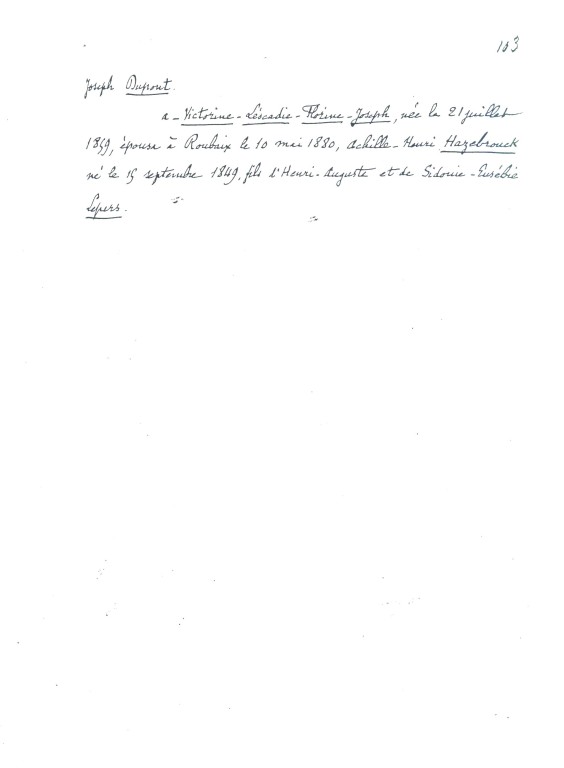 103
Joseph Dupont.
a - Victorine - Léocadie - Florine - Joseph, née le 21 juillet
1859, épousa à Roubaix le 10 mai 1880, Achille - Henri Hazebrouck
né le 15 septembre 1849, fils d'Henri - Auguste et de Sidonie - Eusébie
Lepers.